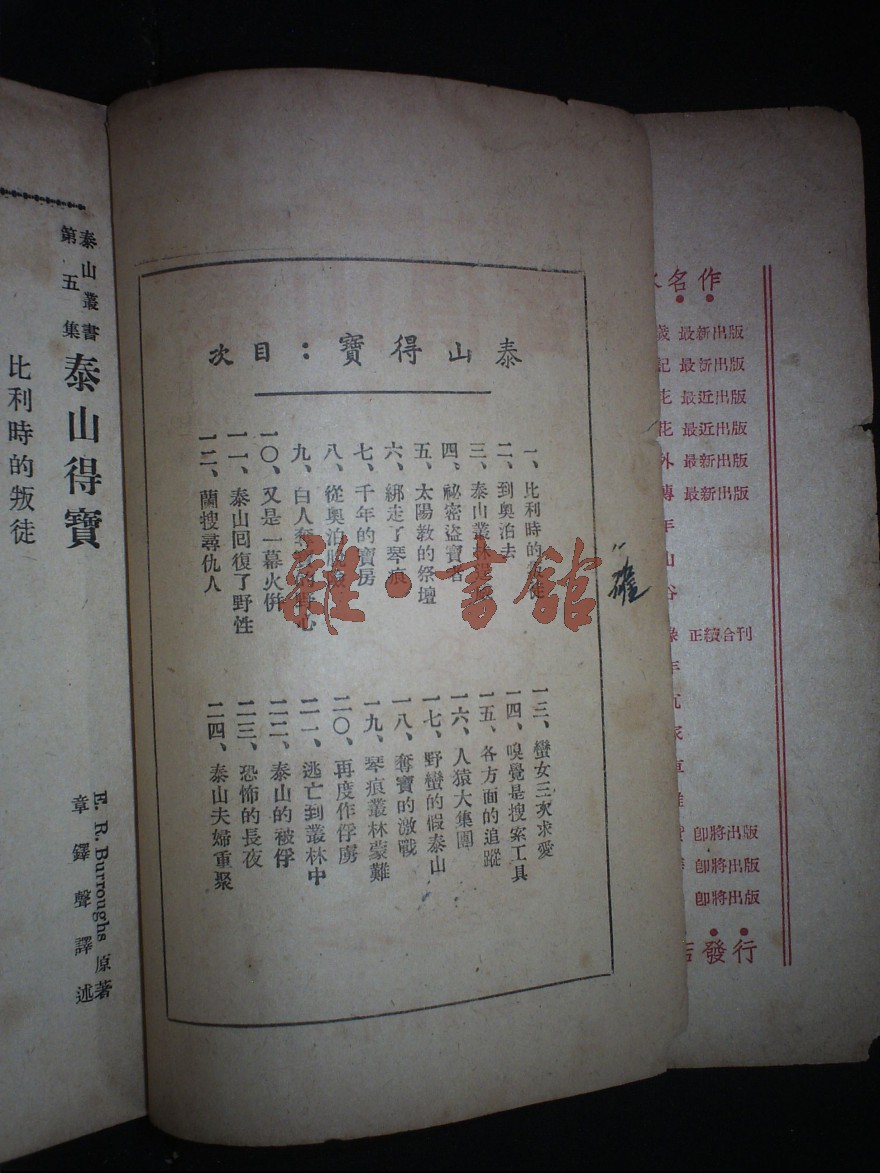 泰山得寶：目次
一、比利時的叛徒
二、到奧泊去
三、泰山叢林
四、祕密盜寶者
五、太陽教的祭壇
六、綁走了琴痕
七、千年的寶房
八、從奧泊脫
九、白人奪 心
一〇、又是一幕火併
一一、泰山回復了野性
一二、蘭搜尋仇人
一三、蠻女三次求愛
一四、嗅覺是搜索工具
一五、各方面的追蹤
一六、人猿大集團
一七、野蠻的假泰山
一八、奪寶的激戰
一九、琴痕叢林蒙難
二〇、再度作俘虜
二一、逃亡到叢林中
二二、泰山的被俘
二三、恐怖的長夜
二四、泰山夫婦重聚
雜·書館
泰山叢書
第五集
泰山得寶
E. R. Burroughs 原著
章鐸聲譯述
比利時的叛徒
名作
最新出版
記 最新出版
花 最近出版
花 最近出版
外 最新出版
傳 最新出版
年
山
谷
正續合刊
年
家
車
即將出版
即將出版
即將出版
店發行